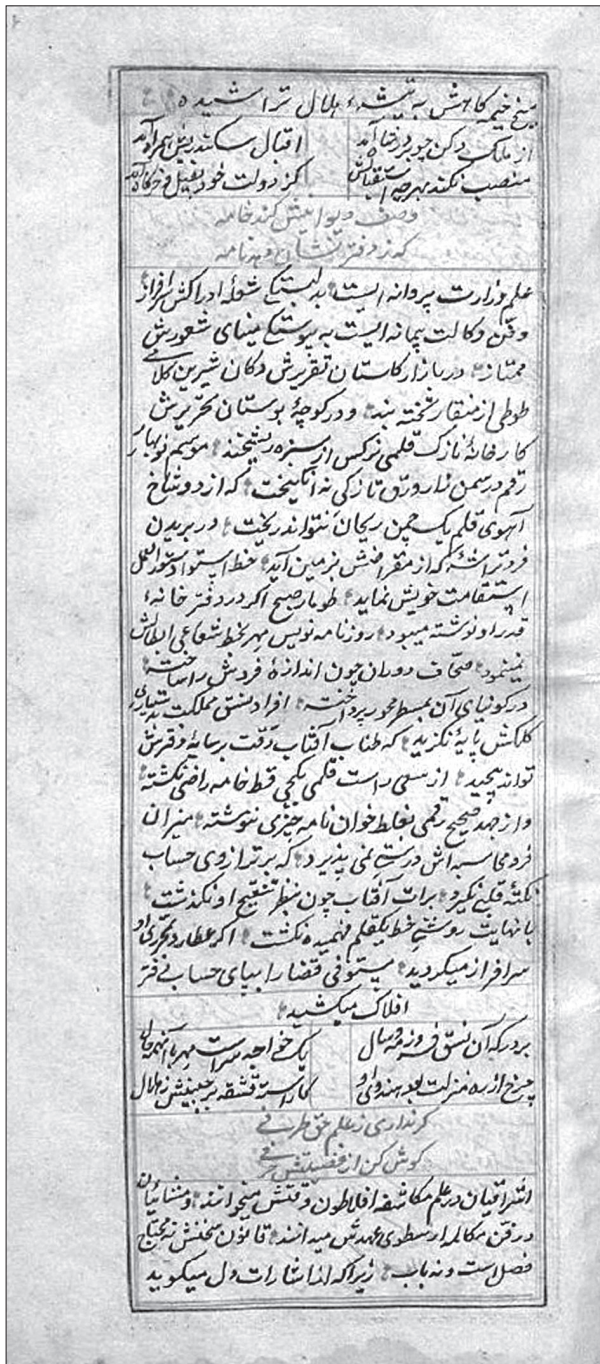 میخ خیمه کاهش به تیشهٔ هلال تراشیده
از ملک دکن چو برد رضا آمد اقبال سکندریش همراه آمد
منصب نکند بهرچه استقبالش کز دولت خود بفیل و خرگاه آمد
وصف دیوانیش کند خامه
که ز دفتر نشان دهد نامه
علم وزارت پروانه ایست بدلبستگی شعلهٔ ادراکش سرافراز
و فن وکالت پیمانه ایست به پیوستگی مینای شعورش
ممتاز در بازار کاستان تقریرش دکان شیرین کلامی
طوطی از منقار تخته بند و در کوچهٔ بوستان تحریرش
کارخانهٔ نازک قلمی نرکس از سبزه ریشخند موسم نوبهار
رقم در سمن زار ورق تازکی نه انکیخت که از دو شاخ
آهوی قلم یک چمن ریحان نتواند ریخت در بریدن
فرد تراشهٔ که از مقراضش بزمین آید خط استوا دستور العمل
استقامت خویش نماید طومار صبح اکر در دفتر خانهٔ
قدر او نوشته میبود روزنامه نویس مهر بخط شعاعی ابطالش
نمینمود صحاف دوران چون اندازهٔ فردش را ساخته
در کونیای آن بمسطر محور پرداخته افراد نسق مملکت بدستیاری
کلکش پایهٔ نکزید که طناب آفتاب دقت برسایهٔ دقرش
تواند پیچید از سعی راست قلمی بکجی قط خامه راضی نکشته
و از جهد صحیح رقمی بغلط خوان نامه چیزی ننوشته میزان
فرد محاسبه اش درستی نمی پذیرد که بر ترازوی حساب
نکتهٔ قلبی نکیرد برات آفتاب چون بنظر تنقیح او نکذشت
با نهایت روشنی خط یکقلم فهمیده نکشت اکر عطارد بحرری او
سرافراز میکردید مستوفی قضا را بپای حساب دفتر
افلاک میکشید
بر درکه آن نسق فروز مه و سال یک خواجه سراست مهر با آنهمه جاه
چرخ از ره منزلت بود هندوی او کاراسته قشقه بر جبینش ز هلال
کر نداری ز علم حق طرفی
کوش کن از فضیلتش حرفی
اشراقیان در علم مکاشفه افلاطون وقتش میخوانند و مشائیان
در فن مکالمه ارسطوی عهدش میدانند قانون سخنش نه محتاج
فصل است و نه باب زیراکه از اشارات دل میکوید